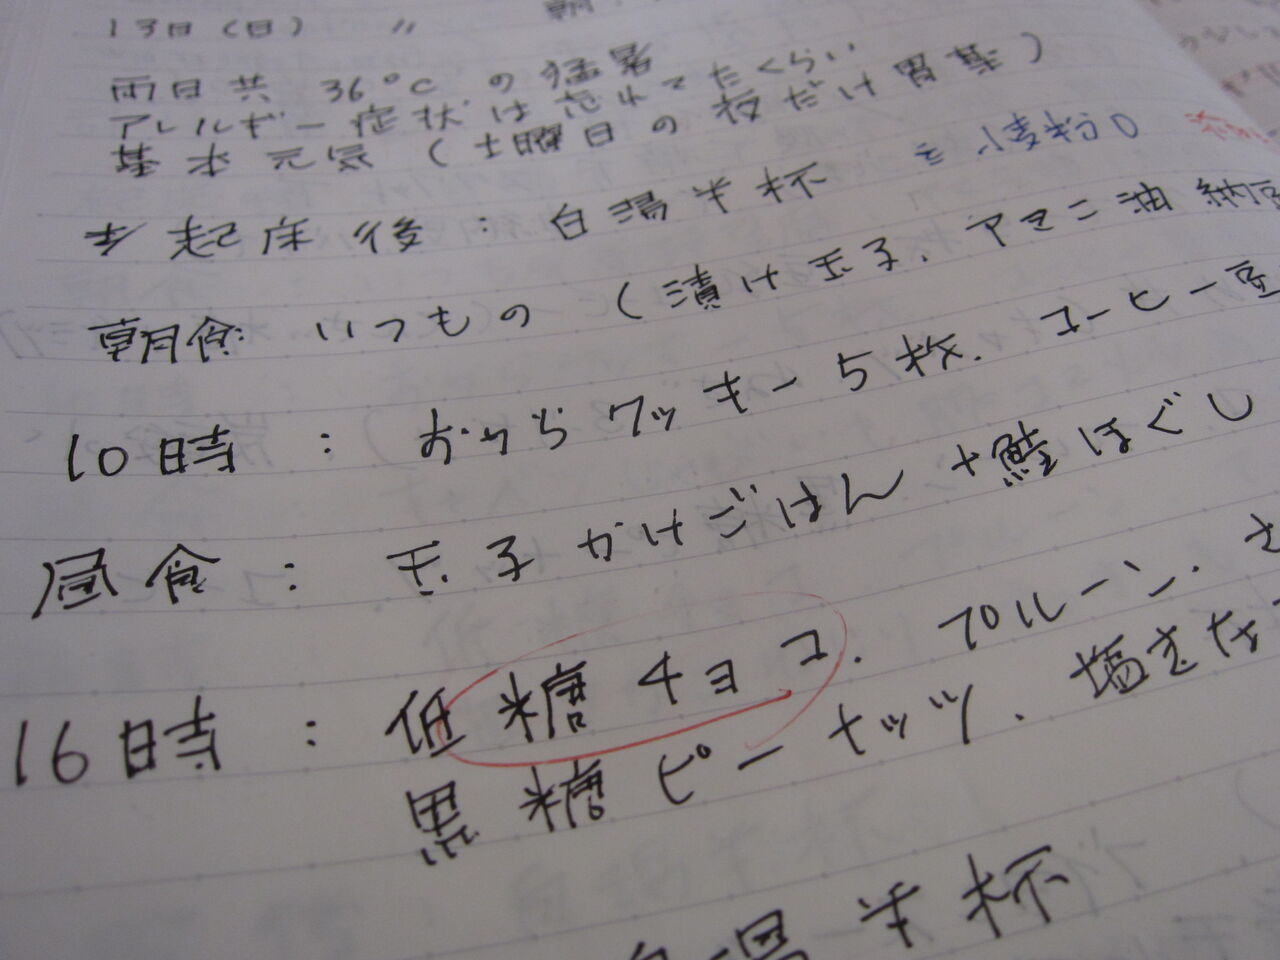 13日(日) 〃 朝
両日共 36℃ の猛暑
アレルギー症状は忘れてたくらい
基本元気 (土曜日の夜だけ胃薬)
を小麦粉0
起床後 : 白湯半杯
朝食: いつもの (漬け玉子、アマニ油納豆
10時 : おからクッキー5枚、コーヒー豆
昼食 : 玉子かけごはん +鮭ほぐし
16時 : 低糖チョコ、プルーン、
黒糖ピーナッツ、塩きな
白湯半杯